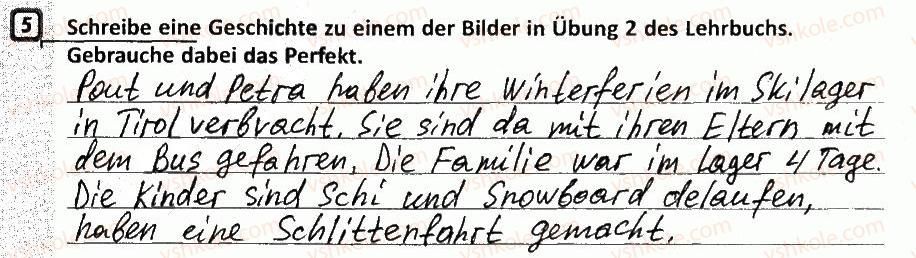 5 Schreibe eine Geschichte zu einem der Bilder in Übung 2 des Lehrbuchs.
Gebrauche dabei das Perfekt.
Pout und Petra haben ihre Winterferien im Skilager
in Tirol verbracht. Sie sind da mit ihren Eltern mit
dem Bus gefahren. Die Familie war im Lager 4 Tage.
Die Kinder sind Schi und Snowboard delaufen,
haben eine Schlittenfahrt gemacht.